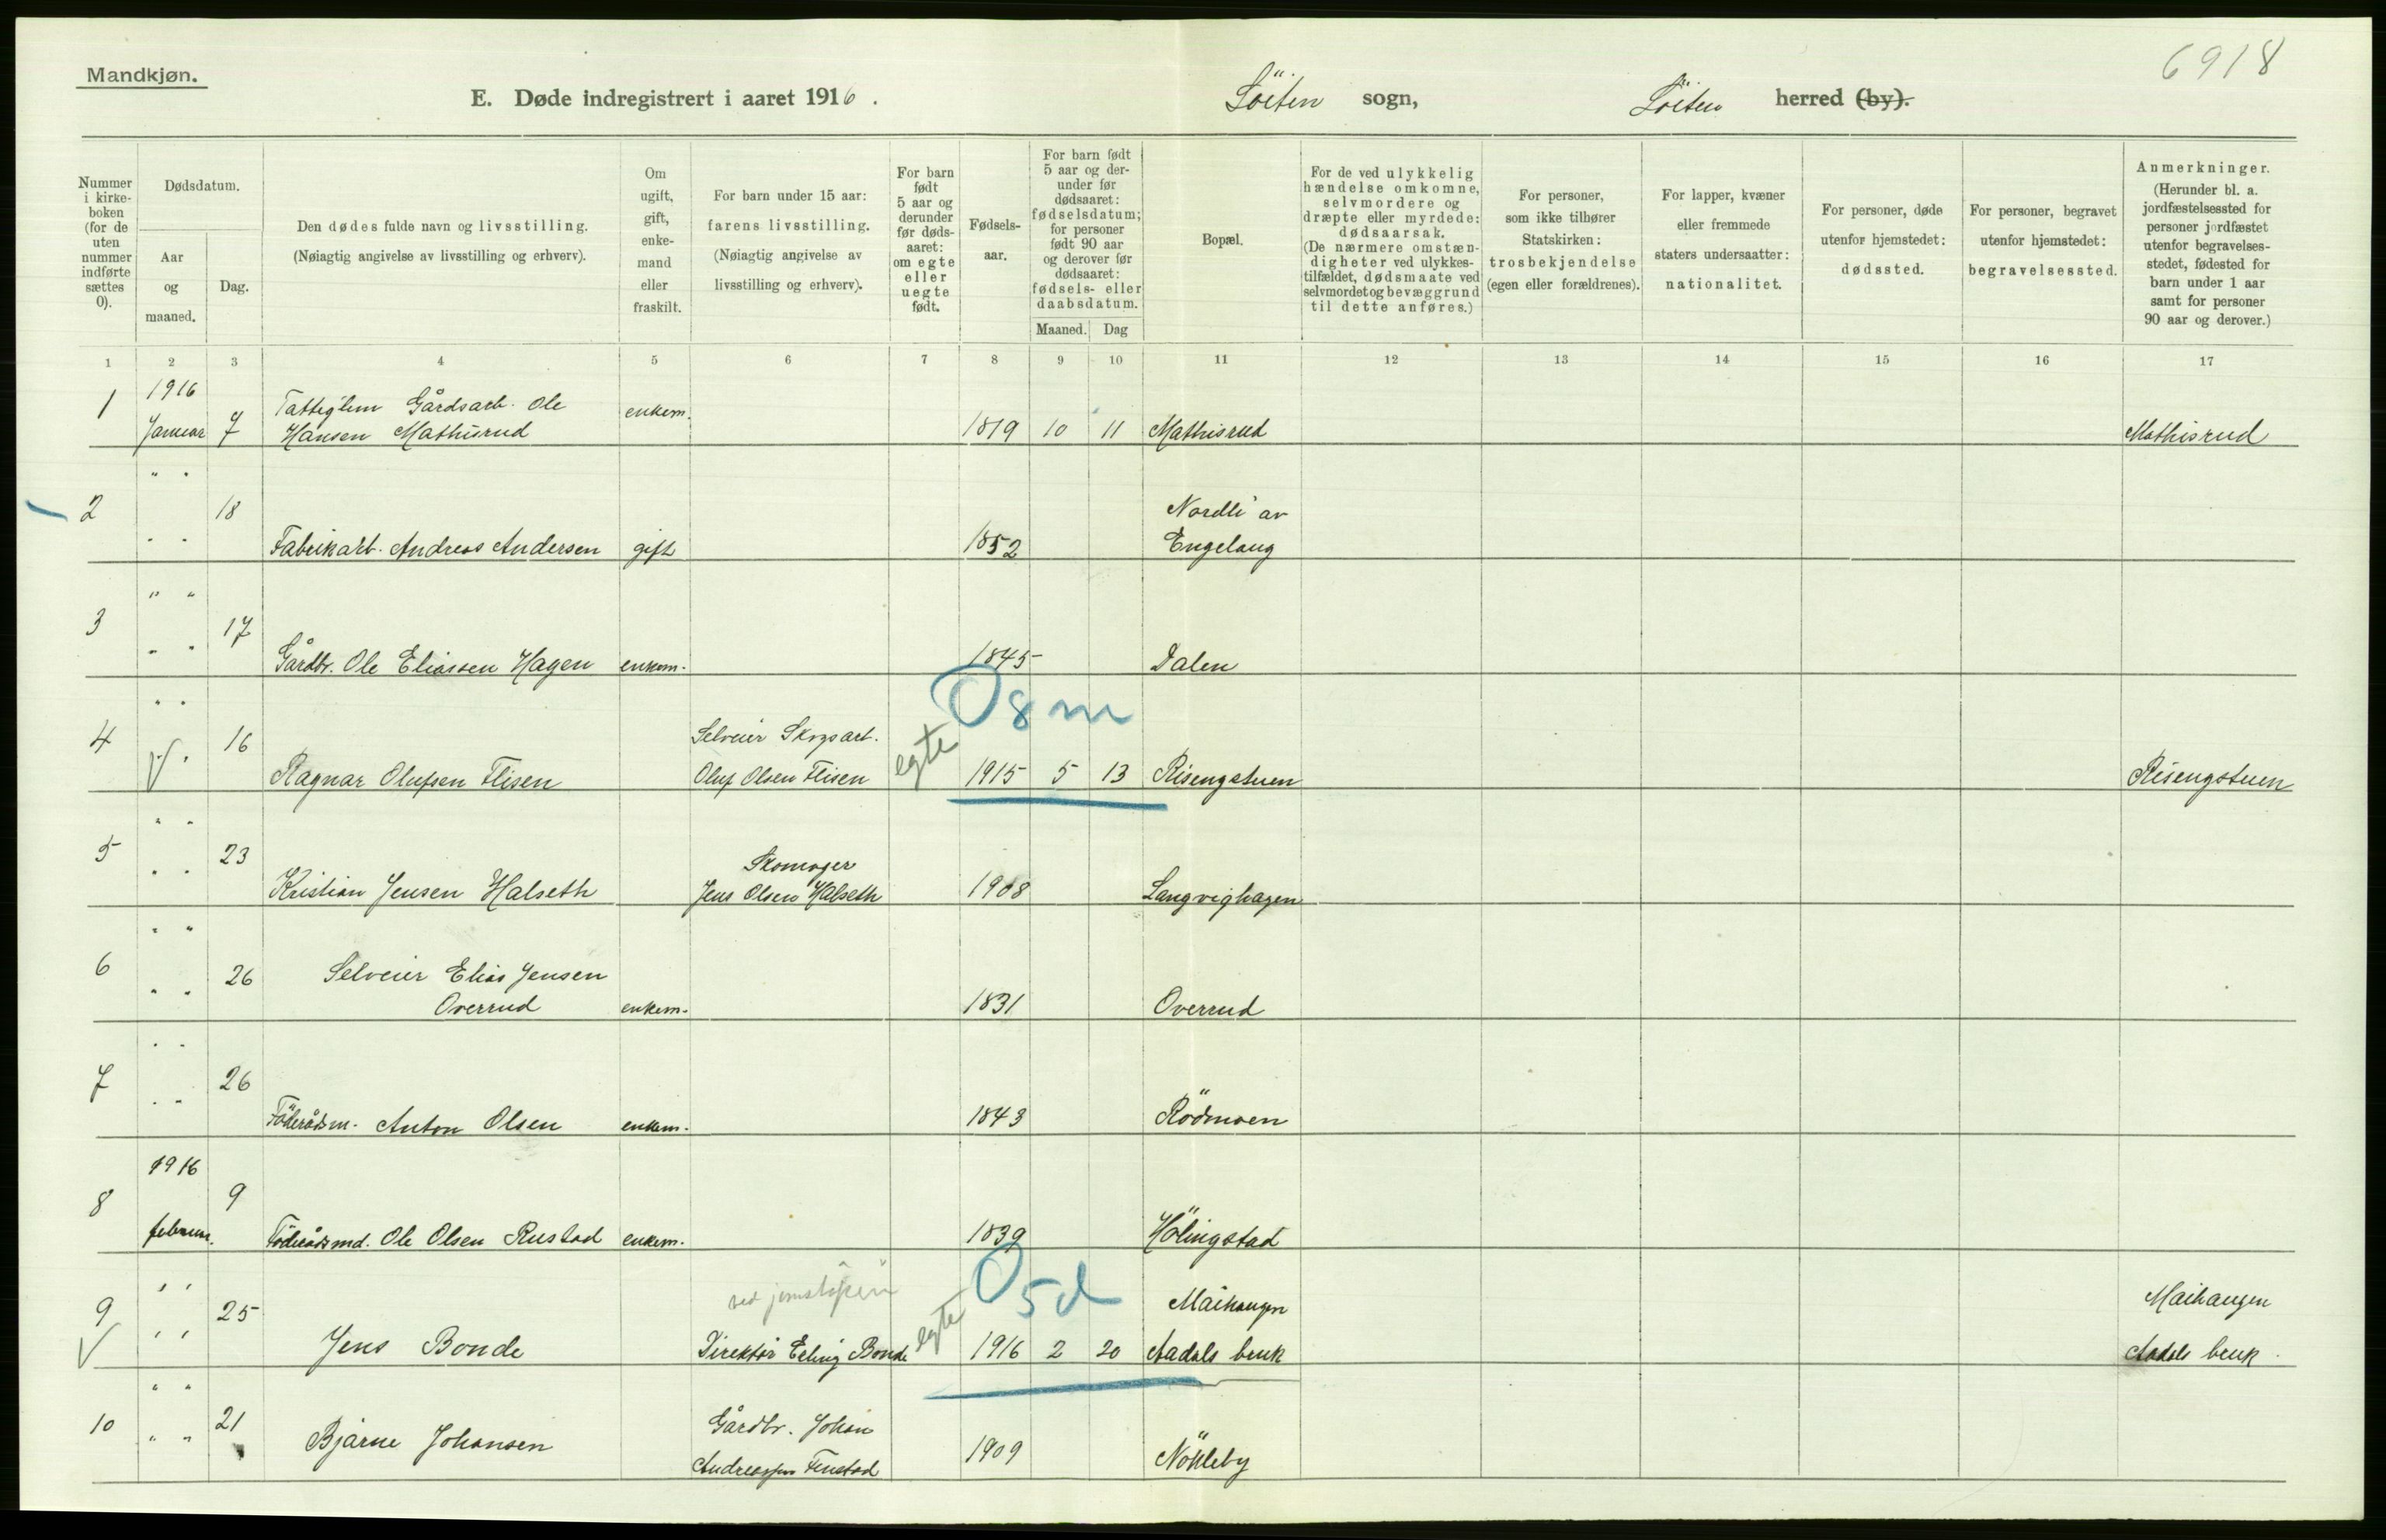 6918
Mandkjøn.
E. Døde indregistrert i aaret 1916.
Löiten sogn,
Löiten herred (by).
Nummer i kirke-boken (for de uten nummer indførte sættes 0).
Dødsdatum.
Aar og maaned.
Dag.
Den dødes fulde navn og livsstilling.
(Nøiagtig angivelse av livsstilling og erhverv).
Om ugift, gift, enke-mand eller fraskilt.
For barn under 15 aar: farens livsstilling.
(Nøiagtig angivelse av livsstilling og erhverv).
For barn født 5 aar og derunder før døds-aaret: om egte eller uegte født.
Fødsels-aar.
For barn født 5 aar og der-under før dødsaaret: fødselsdatum; for personer født 90 aar og derover før dødsaaret: fødsels- eller daabsdatum.
Maaned. Dag
Bopæl.
For de ved ulykkelig hændelse omkomne, selvmordere og dræpte eller myrdede: dødsaarsak.
(De nærmere omstæn-digheter ved ulykkes-tilfældet, dødsmaate ved selvmordet og bevæggrund til dette anføres.)
For personer, som ikke tilhører Statskirken: trosbekjendelse (egen eller forældrenes).
For lapper, kvæner eller fremmede staters undersaatter: nationalitet.
For personer, døde utenfor hjemstedet: dødssted.
For personer, begravet utenfor hjemstedet: begravelsessted.
Anmerkninger.
(Herunder bl. a. jordfæstelsessted for personer jordfæstet utenfor begravelses-stedet, fødested for barn under 1 aar samt for personer 90 aar og derover.)
1 2 3 4 5 6 7 8 9 10 11 12 13 14 15 16 17
1916
1 Gårdsarb. Ole enkem.
Januar 7 Hansen Mathisrud 1819 10 11 Mathisrud Mathisrud
" "
2 18 Nordli av
" " Fabrikarb. Andreas Andersen gift 1852 Engelaug
" "
3 17
" " Gårdbr. Ole Eliassen Hagen enkem. 1845 Dalen
" " O 8 m
4 16 Selveier Skogsarb.
" Ragnar Olufsen Flisen Oluf Olsen Flisen egte 1915 5 13 Risengstuen Risengstuen
" "
5 23 Skomager
" " Kristian Jensen Halseth Jens Olsen Halseth 1908 Langvighagen
" "
6 26 Selveier Elias Jensen
" " Overrud enkem. 1831 Overrud
" "
7 26
" " Föderådsm. Anton Olsen enkem. 1843 Rödmoen
1916
8 9
februar. Föderådsmd. Ole Olsen Rustad enkem. 1839 Hölingstad
" " ved jernstöperi O 5 d
9 25 Maihaugen Maihaugen
" " Jens Bonde Direktör Erling Bonde egte 1916 2 20 Aadals bruk Aadals bruk.
" "
10 21 Gårdbr. Johan
" " Bjarne Johansen Andreassen Finstad 1909 Nökleby